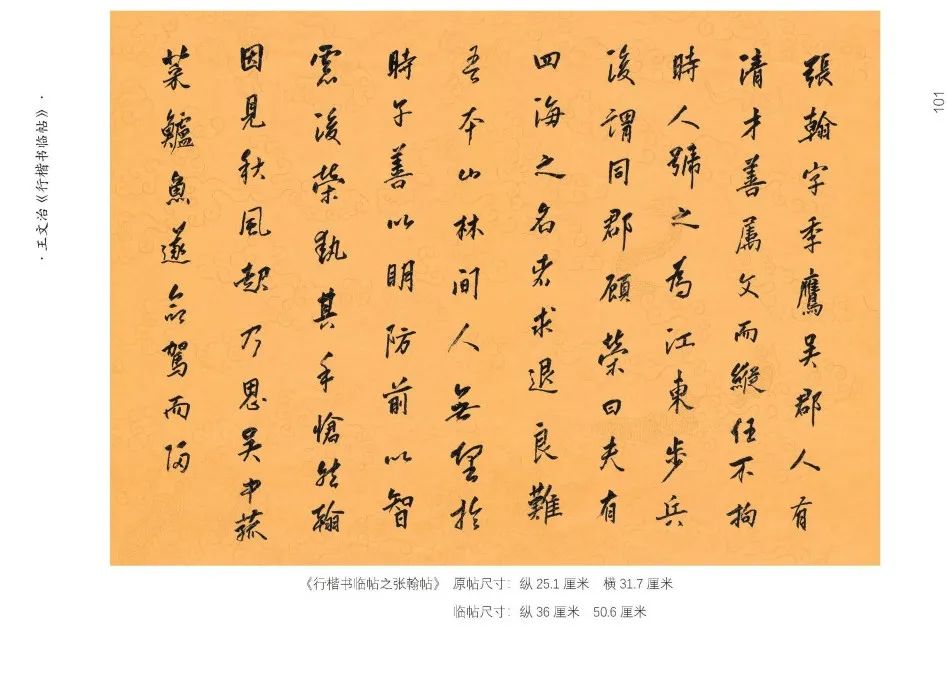 張翰字季鷹吴郡人有
清才善屬文而縱任不拘
時人號之為江東步兵
後謂同郡顧榮曰夫有
四海之名者求退良難
吾本山林間人無望於
時子善以明防前以智
慮後榮執其手愴然翰
因見秋風起乃思吴中菰
菜鱸魚遂命駕而歸
《行楷书临帖之张翰帖》 原帖尺寸：纵 25.1 厘米 横 31.7 厘米
临帖尺寸：纵 36 厘米 50.6 厘米
·王文治《行楷书临帖》·
101